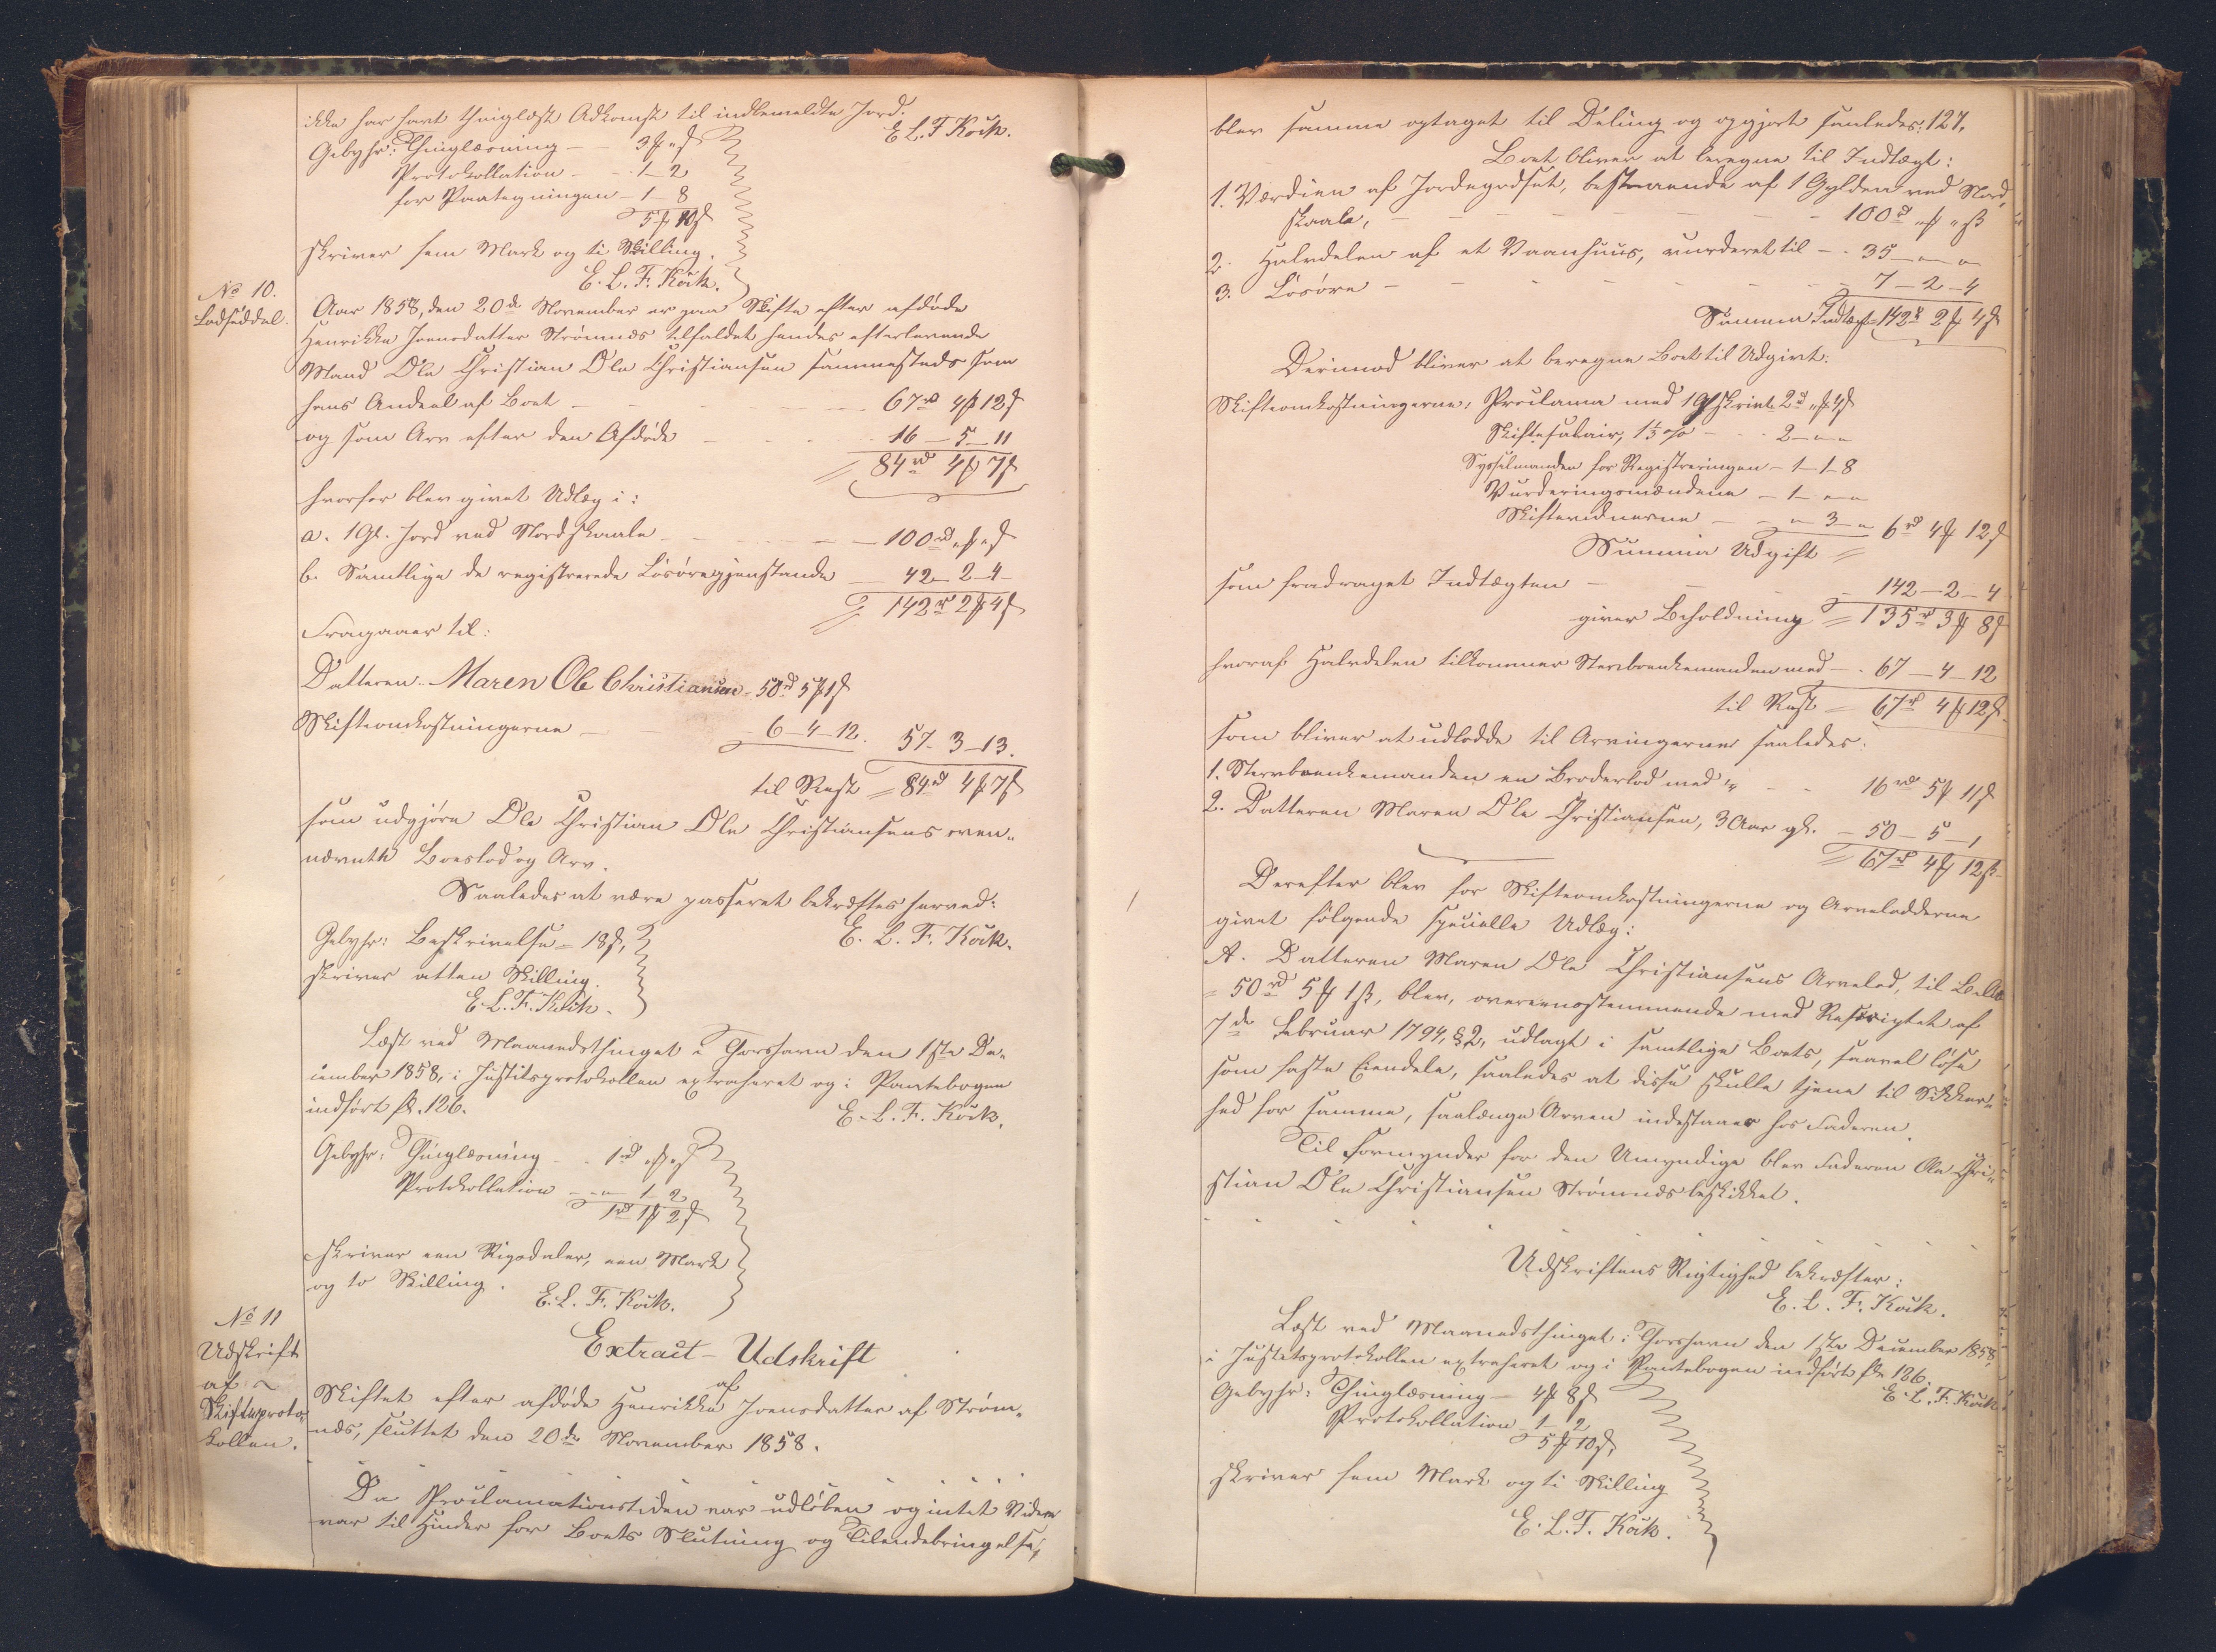 ikke har havt thinglæst Adkomst til indbemeldte Jord.
E. L. F. Kock.
Gebyhr: Thinglæsning — 3 ₰ " ß
Protokollation — 1 — 2
for Paategningen — 1 — 8
5 ₰ 10 ß
skriver fem Mark og ti Skilling.
E. L. F. Kock.
No 10.
Lodseddel.
Aar 1858, den 20de November er paa Skifte efter afdøde
Henrikke Joensdatter Strømnæs tilfaldet hendes efterlevende
Mand Ole Christian Ole Christiansen sammesteds som
hans Andeel af Boet — 67rd 4 ₰ 12 ß
og som Arv efter den Afdøde — 16 — 5 — 11
84rd 4 ₰ 7 ß
hvorfor blev givet Udlæg i:
a. 1 Gl. Jord ved Nordskaale — 100rd " ₰ " ß
b. Samtlige de registrerede Løsøregjenstande — 42 — 2 — 4
142rd 2 ₰ 4 ß
Fragaaer til:
Datteren Maren Ole Christiansen — 50rd 5 ₰ 1 ß
Skifteomkostningerne — 6 — 4 — 12. 57 — 3 — 13.
til Rest = 84rd 4 ₰ 7 ß
som udgjøre Ole Christian Ole Christiansens oven-
nævnte Boeslod og Arv.
Saaledes at være passeret bekræftes herved:
E. L. F. Kock.
Gebyhr: Beskrivelse = 18 ß,
skriver atten Skilling.
E. L. F. Kock.
Læst ved Maanedsthinget i Thorshavn den 1ste De-
cember 1858, i Justitsprotokollen extraheret og i Pantebogen
indført fol. 126.
E. L. F. Kock.
Gebyhr: Thinglæsning — 1rd " ₰ " ß
Protokollation — " — 1 — 2
1rd 1 ₰ 2 ß
skriver een Rigsdaler, een Mark
og to Skilling.
E. L. F. Kock.
No 11
Udskrift
af
Skifteproto-
kollen.
Extract-Udskrift
af
Skiftet efter afdøde Henrikke Joensdatter af Strøm-
næs, sluttet den 20de November 1858.
Da Proclamationstiden var udløben og intet Videre
var til Hinder for Boets Slutning og Tilendebringelse,
127.
blev samme optaget til Deling og opgjort saaledes:
Boet bliver at beregne til Indtægt:
1. Værdien af Jordegodset, bestaaende af 1 Gylden ved Nord-
skaale, — 100rd " ₰ " ß
2. Halvdelen af et Vaanhuus, vurderet til — 35 — " — "
3. Løsøre — 7 — 2 — 4
Summa Indtægt = 142rd 2 ₰ 4 ß
Derimod bliver at beregne Boet til Udgivt:
Skifteomkostningerne: Proclama med 2rd " ₰ 4 ß
Skiftesalair, 1⅓ % — 2 — " — "
Sysselmanden for Registreringen — 1 — 1 — 8
Vurderingsmændene — 1 — " — "
Skiftevidnerne — " — 3 — " 6rd 4 ₰ 12 ß
Summa Udgift =
som fradraget Indtægten — 142 — 2 — 4
giver Beholdning = 135rd 3 ₰ 8 ß
hvoraf Halvdelen tilkommer Stervboenkemanden med — 67 — 4 — 12
til Rest = 67rd 4 ₰ 12 ß
som bliver at udlodde til Arvingerne saaledes:
1. Stervboenkemanden en Broderlod med — 16rd 5 ₰ 11 ß
2. Datteren Maren Ole Christiansen, 3 Aar gl. — 50 — 5 — 1
= 67rd 4 ₰ 12 ß
Derefter blev for Skifteomkostningerne og Arvelodderne
givet følgende specielle Udlæg:
A. Datteren Maren Ole Christiansens Arvelod, til Beløb
= 50rd 5 ₰ 1 ß, blev, overeensstemmende med Rescriptet af
7de Februar 1794, § 2, udlagt i samtlige Boets, saavel løse
som faste Eiendele, saaledes at disse skulle tjene til Sikker-
hed for samme, saalænge Arven indestaaer hos Faderen.
Til Formynder for den Umyndige blev Faderen Ole Chri-
stian Ole Christiansen Strømnæs beskikket.
Udskriftens Rigtighed bekræfter:
E. L. F. Kock.
Læst ved Maanedsthinget i Thorshavn den 1ste December 1858,
i Justitsprotokollen extraheret og i Pantebogen indført fol. 126.
E. L. F. Kock
Gebyhr: Thinglæsning — 4 ₰ 8 ß
Protokollation 1 — 2
5 ₰ 10 ß,
skriver fem Mark og ti Skilling
E. L. F. Kock.